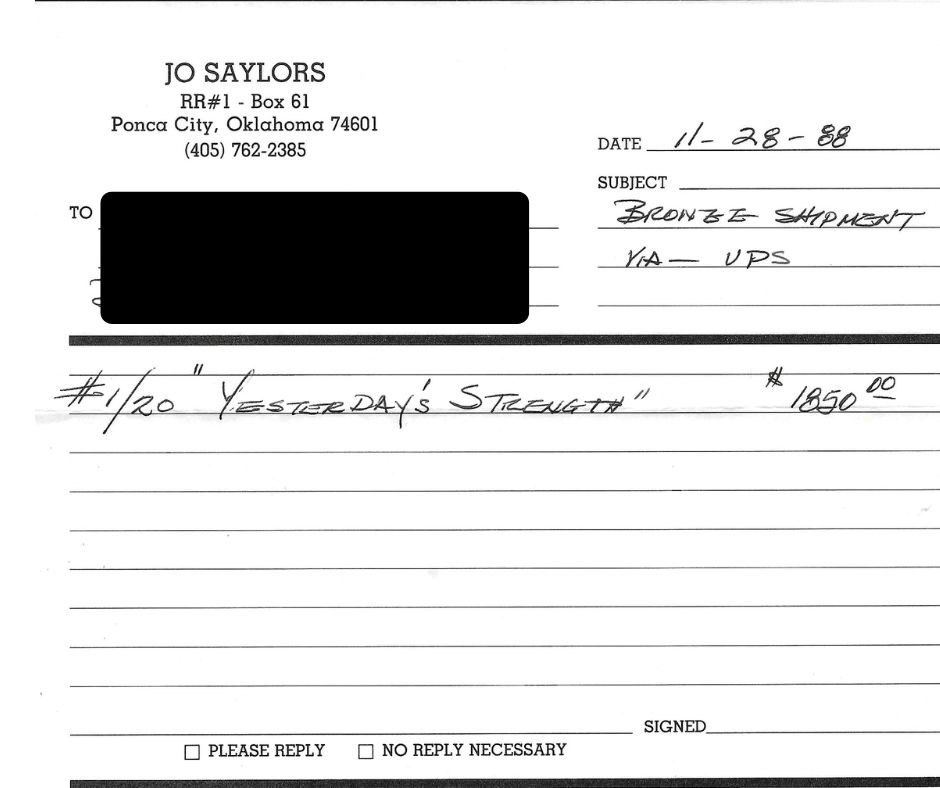 JO SAYLORS
RR#1 - Box 61
Ponca City, Oklahoma 74601
(405) 762-2385
DATE 11-28-88
SUBJECT
TO
BRONZE SHIPMENT
VIA — UPS
#1/20 "YESTERDAY'S STRENGTH" $1850.00
SIGNED
PLEASE REPLY NO REPLY NECESSARY